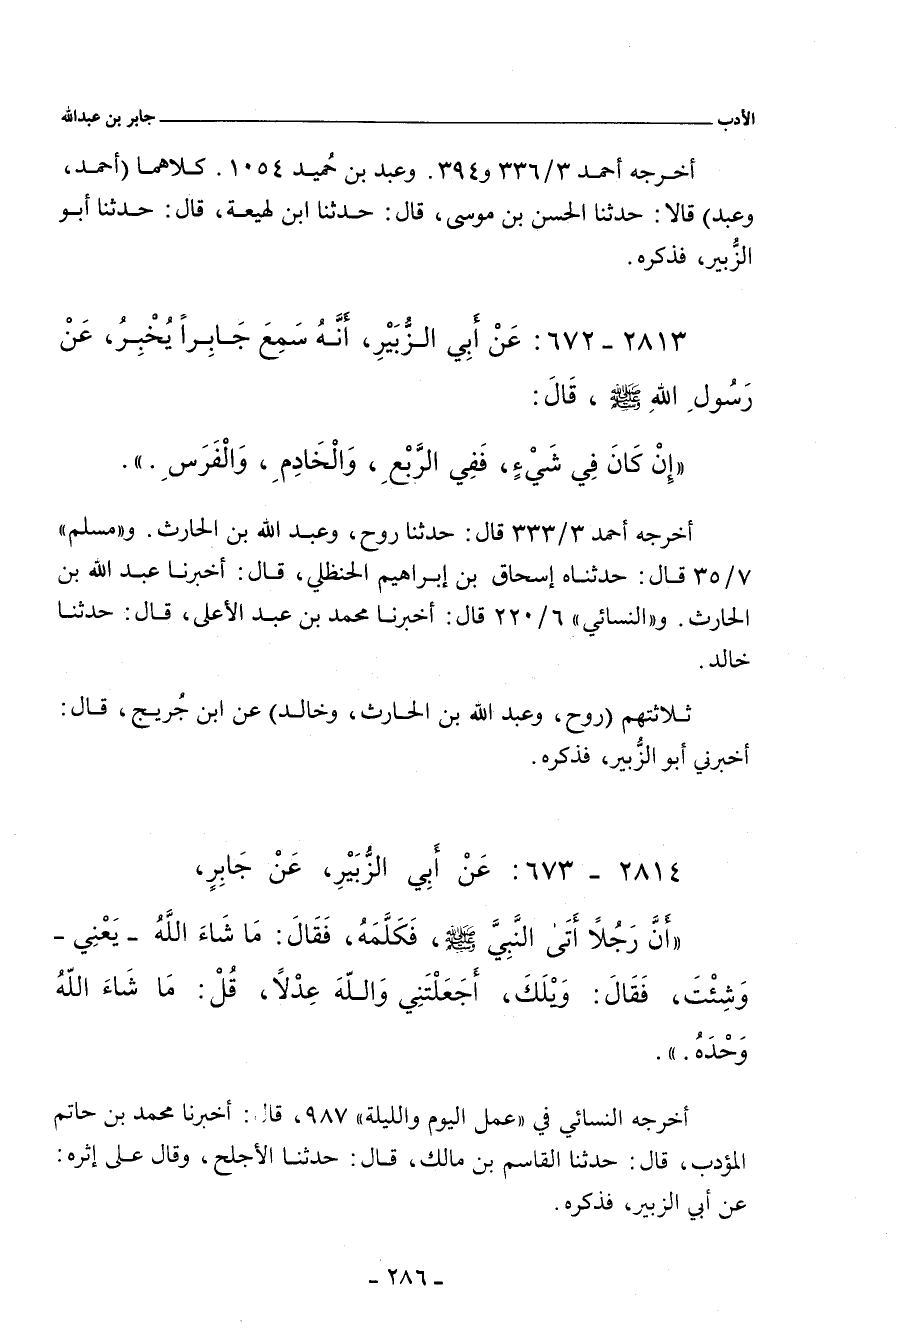 الأدب ـــــــــــــــــــــــــــــــــ جابر بن عبدالله
أخرجه أحمد ٣/ ٣٣٦ و٣٩٤. وعبد بن حُميد ١٠٥٤. كلاهما (أحمد،
وعبد) قالا: حدثنا الحسن بن موسى، قال: حدثنا ابن لهيعة، قال: حدثنا أبو
الزُّبير، فذكره.
٢٨١٣ ـ ٦٧٢: عَنْ أَبِي الزُّبَيْرِ، أَنَّهُ سَمِعَ جَابِراً يُخْبِرُ، عَنْ
رَسُولِ اللهِ ﷺ، قَالَ:
«إِنْ كَانَ فِي شَيْءٍ، فَفِي الرَّبْعِ، وَالْخَادِمِ، وَالْفَرَسِ.».
أخرجه أحمد ٣/ ٣٣٣ قال: حدثنا روح، وعبد الله بن الحارث. و«مسلم»
٧/ ٣٥ قال: حدثناه إسحاق بن إبراهيم الحنظلي، قال: أخبرنا عبد الله بن
الحارث. و«النسائي» ٦/ ٢٢٠ قال: أخبرنا محمد بن عبد الأعلى، قال: حدثنا
خالد.
ثلاثتهم (روح، وعبد الله بن الحارث، وخالد) عن ابن جُريج، قال:
أخبرني أبو الزُّبير، فذكره.
٢٨١٤ ـ ٦٧٣: عَنْ أَبِي الزُّبَيْرِ، عَنْ جَابِرٍ،
«أَنَّ رَجُلاً أَتَى النَّبِيَّ ﷺ، فَكَلَّمَهُ، فَقَالَ: مَا شَاءَ اللَّهُ ـ يَعْنِي ـ
وَشِئْتَ، فَقَالَ: وَيْلَكَ، أَجَعَلْتَنِي وَاللَّهَ عِدْلاً، قُلْ: مَا شَاءَ اللَّهُ
وَحْدَهُ.».
أخرجه النسائي في «عمل اليوم والليلة» ٩٨٧، قال: أخبرنا محمد بن حاتم
المؤدب، قال: حدثنا القاسم بن مالك، قال: حدثنا الأجلح، وقال على إثره:
عن أبي الزبير، فذكره.
ـ ٢٨٦ ـ